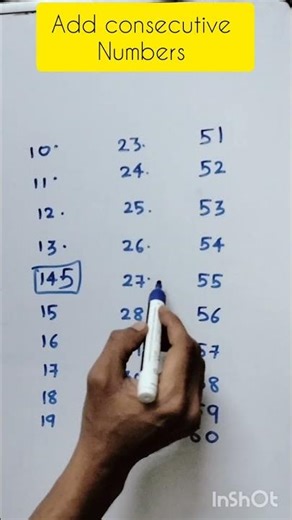 Add consecutive
Numbers
10.
11.
12.
13.
145
15
16
17
18
19
23.
24.
25.
26.
27.
28
51
52
53
54
55
56
57
InShOt